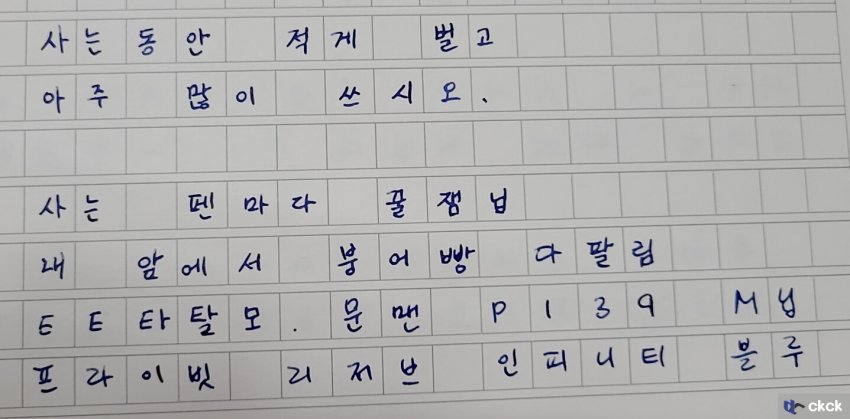 사는동안 적게 벌고
아주 많이 쓰시오.
사는 펜마다 꿀잼닙
내 앞에서 붕어빵 다팔림
ㅌㅌ타탈모. 문맨 P139 M닙
프라이빗 리저브 인피니티 블루
ckck